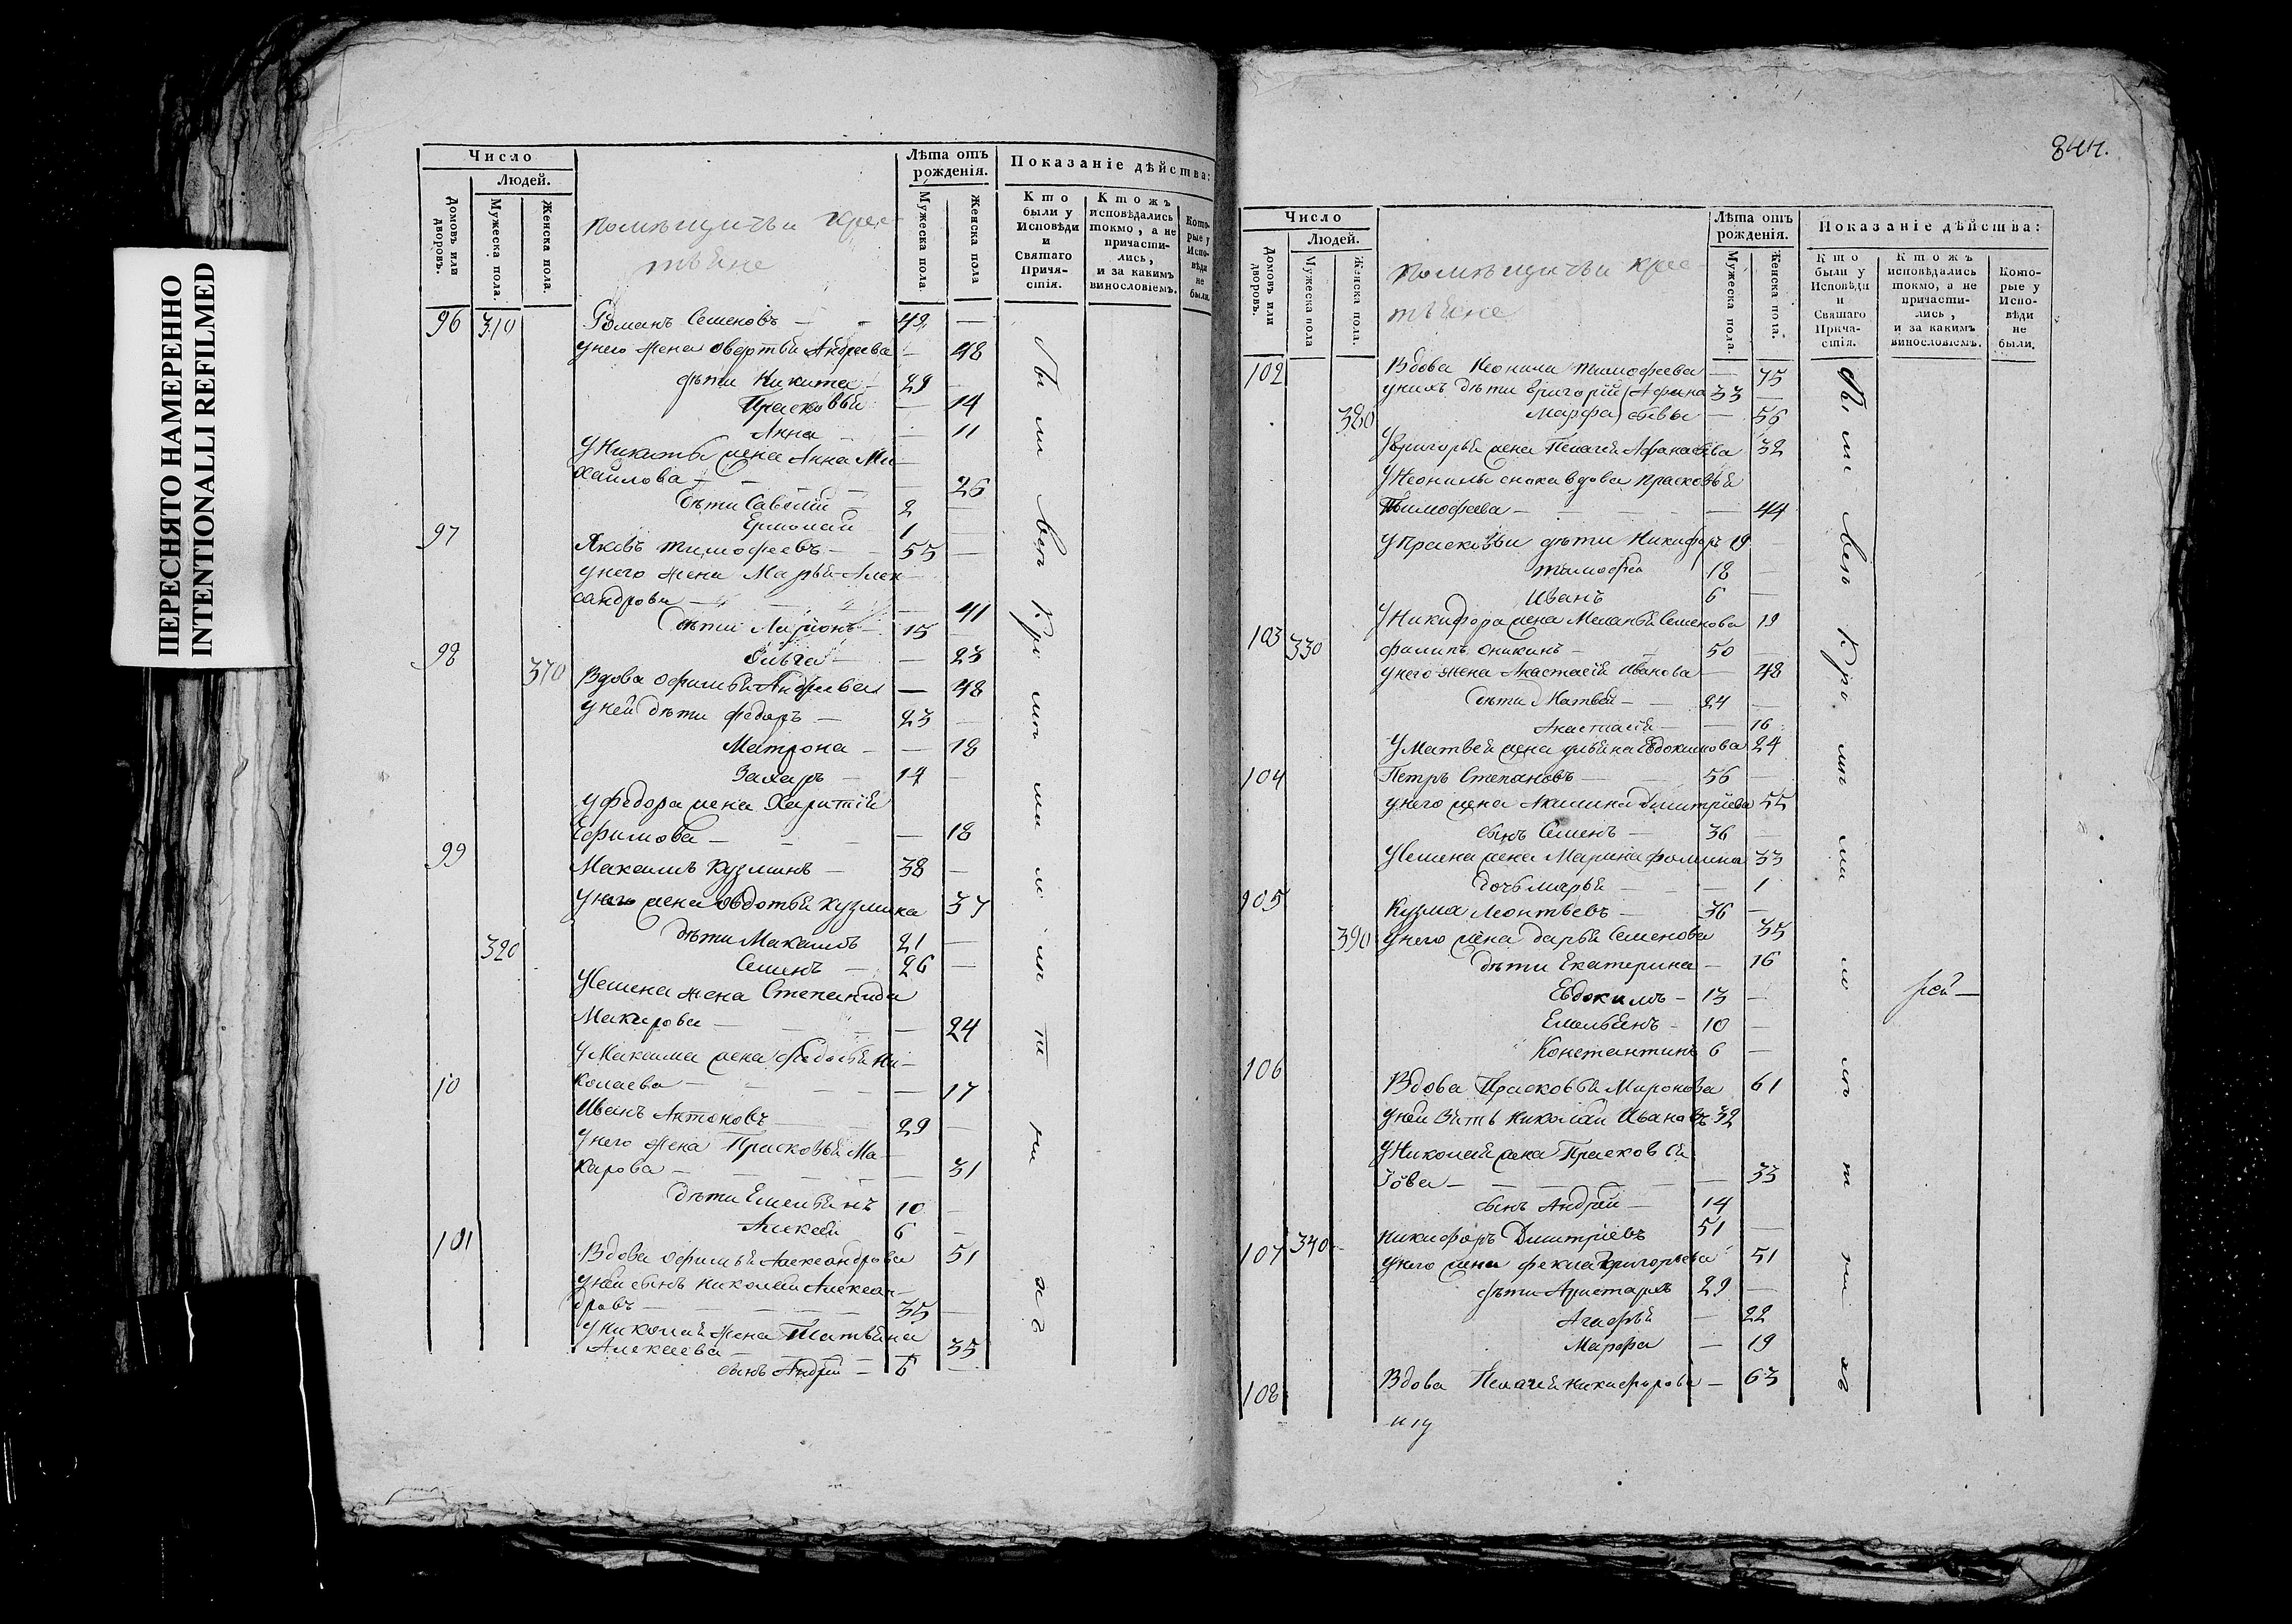 ПЕРЕСНЯТО НАМЕРЕННО
INTENTIONALLI REFILMED
Число
Людей.
Домовъ или дворовъ.
Мужеска пола.
Женска пола.
помѣщичьи крес-
тьяне
Лѣта отъ рожденія.
Мужеска пола.
Женска пола
Показаніе дѣйства:
Кто были у Исповѣди и Святаго Прича-стія.
Ктожъ исповѣдались токмо, а не причасти-лись, и за какимъ винословіемъ.
Кото-рые у Испо-вѣди не были.
96 310 Романъ Семеновъ — 49 —
у него жена Андреева — 48
дѣти Никита — 29 —
Прасковья — 14
Анна — 11
У Никиты жена Анна Ми-
хайлова — 26
дѣти Савелій 2 —
Ермолай 1 —
97 Яковъ Тимофеевъ — 55 —
у него жена Марья Алек-
сандрова — 41
дѣти Ларіонъ — 15 —
98 Ольга — 23
370 Вдова Офимья Андреева — 48
у ней дѣти Федоръ — 23 —
Матрона — 18
Захаръ — 14 —
у Федора жена Харитія
Ефимова — 18
99 Максимъ Кузминъ — 38 —
у него жена Овдотья Кузмина 37
дѣти Максимъ 21 —
320 Семенъ — 26 —
У Семена жена Степанида
Макарова — 24
У Максима жена Федосья Ни-
колаева — 17
10 Иванъ Антоновъ 29 —
у него жена Прасковья Ма-
карова — 31
дѣти Емельянъ 10 —
Алексей 6 —
101 Вдова Офимья Александрова 51
у ней сынъ Николай Алексан-
дровъ — 35 —
у Николая жена Татьяна
Алексеева — 35
сынъ Андрей — 6 —
844.
Число
Людей.
Домовъ или дворовъ.
Мужеска пола
Женска пола.
помѣщичьи крес-
тьяне
Лѣта отъ рожденія.
Мужеска пола.
Женска пола.
Показаніе дѣйства:
Кто были у Исповѣди и Святаго Прича-стія.
Ктожъ исповѣдались токмо, а не причасти-лись, и за какимъ винословіемъ.
Кото-рые у Испо-вѣди не были.
102 Вдова Неонила Тимофеева — 75
у нихъ дѣти Григорій Афана 33 —
380 Марфа сьевы — 56
У Григорья жена Пелагея Афанасьева 32
У Неонилы сноха вдова Прасковья
Тимофеева — 44
У Прасковьи дѣти Никифоръ 19 —
Тимофей 18 —
Иванъ 6 —
У Никифора жена Меланья Семенова 19
103 330 Филипъ Оникинъ — 50 —
у него жена Анастасія Иванова — 48
дѣти Матвей — 24 —
Анастасія — 16
У Матвея жена Ульяна Евдокимова 24
104 Петръ Степановъ — 56 —
у него жена Акилина Димитріева 55
сынъ Семенъ — 36 —
У Семена жена Марина Фомина 33
дочь Марья — 1
105 Кузма Леонтьевъ — 36 —
390 у него жена Дарья Семенова 35
дѣти Екатерина — 16
Евдокимъ — 13 —
Емельянъ — 10 —
Константинъ 6 —
106 Вдова Прасковья Миронова 61
у ней зять Николай Ивановъ 32
У Николая жена Прасковья
Іова — 33
сынъ Андрей — 14
107 340 Никифоръ Димитріевъ 51 —
у него жена Фекла Григорьева 51
дѣти Аристархъ 29 —
Агафья — 22
Марфа — 19
108 Вдова Пелагея Никифорова — 63